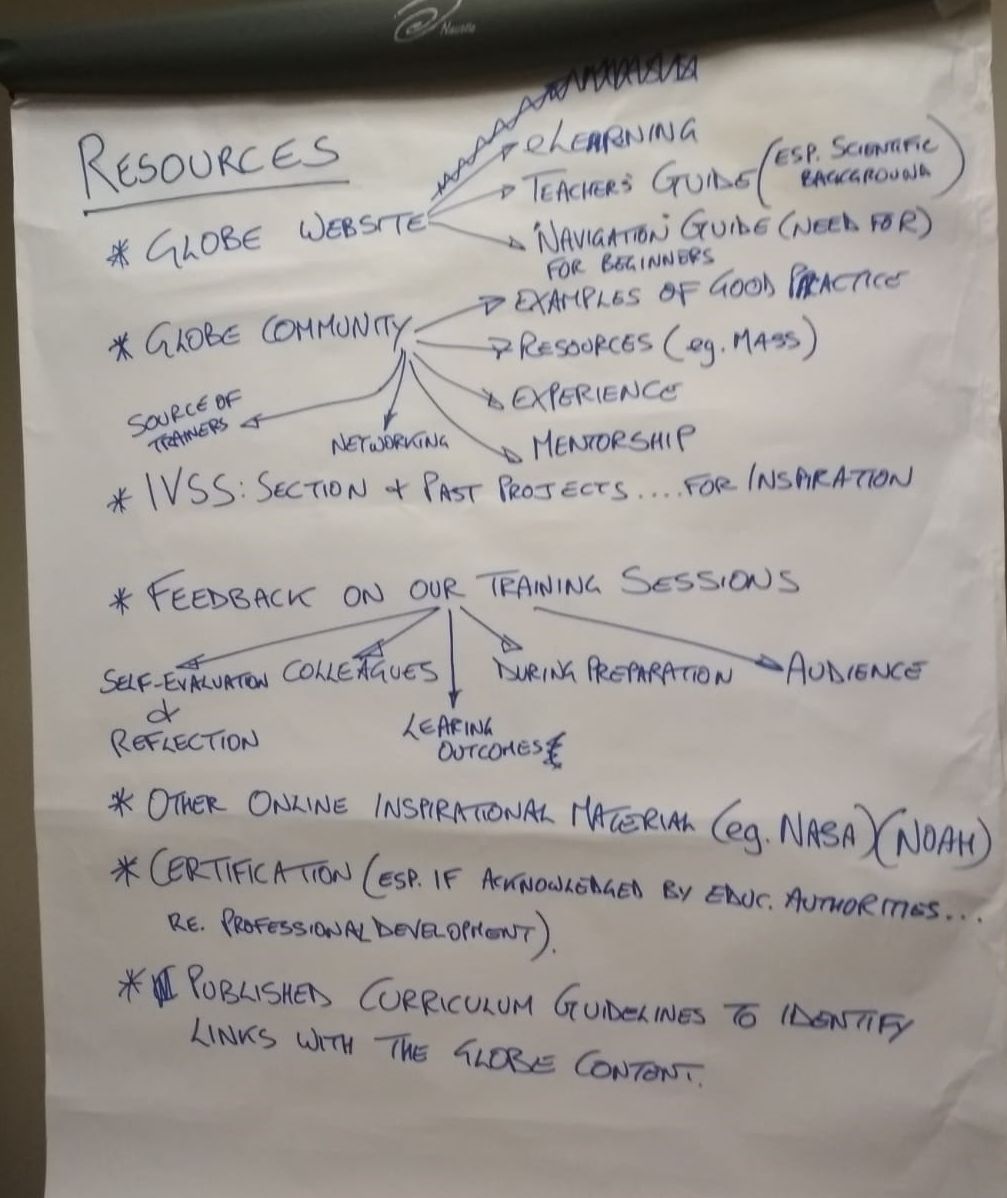 Nobo
RESOURCES
* GLOBE WEBSITE
eLEARNING
TEACHER'S GUIDE (ESP. SCIENTIFIC BACKGROUND)
'NAVIGATION' GUIDE (NEED FOR)
FOR BEGINNERS
* GLOBE COMMUNITY
EXAMPLES OF GOOD PRACTICE
RESOURCES (eg. MASS)
EXPERIENCE
MENTORSHIP
NETWORKING
SOURCE OF
TRAINERS
* IVSS: SECTION & PAST PROJECTS .... FOR INSPIRATION
* FEEDBACK ON OUR TRAINING SESSIONS
SELF-EVALUATION
&
REFLECTION
COLLEAGUES
LEARING
OUTCOMES
DURING PREPARATION
AUDIENCE
* OTHER ONLINE INSPIRATIONAL MATERIAL (eg. NASA) (NOAH)
* CERTIFICATION (ESP. IF ACKNOWLEDGED BY EDUC. AUTHORITIES...
RE. PROFESSIONAL DEVELOPMENT).
* PUBLISHED CURRICULUM GUIDELINES TO IDENTIFY
LINKS WITH THE GLOBE CONTENT.